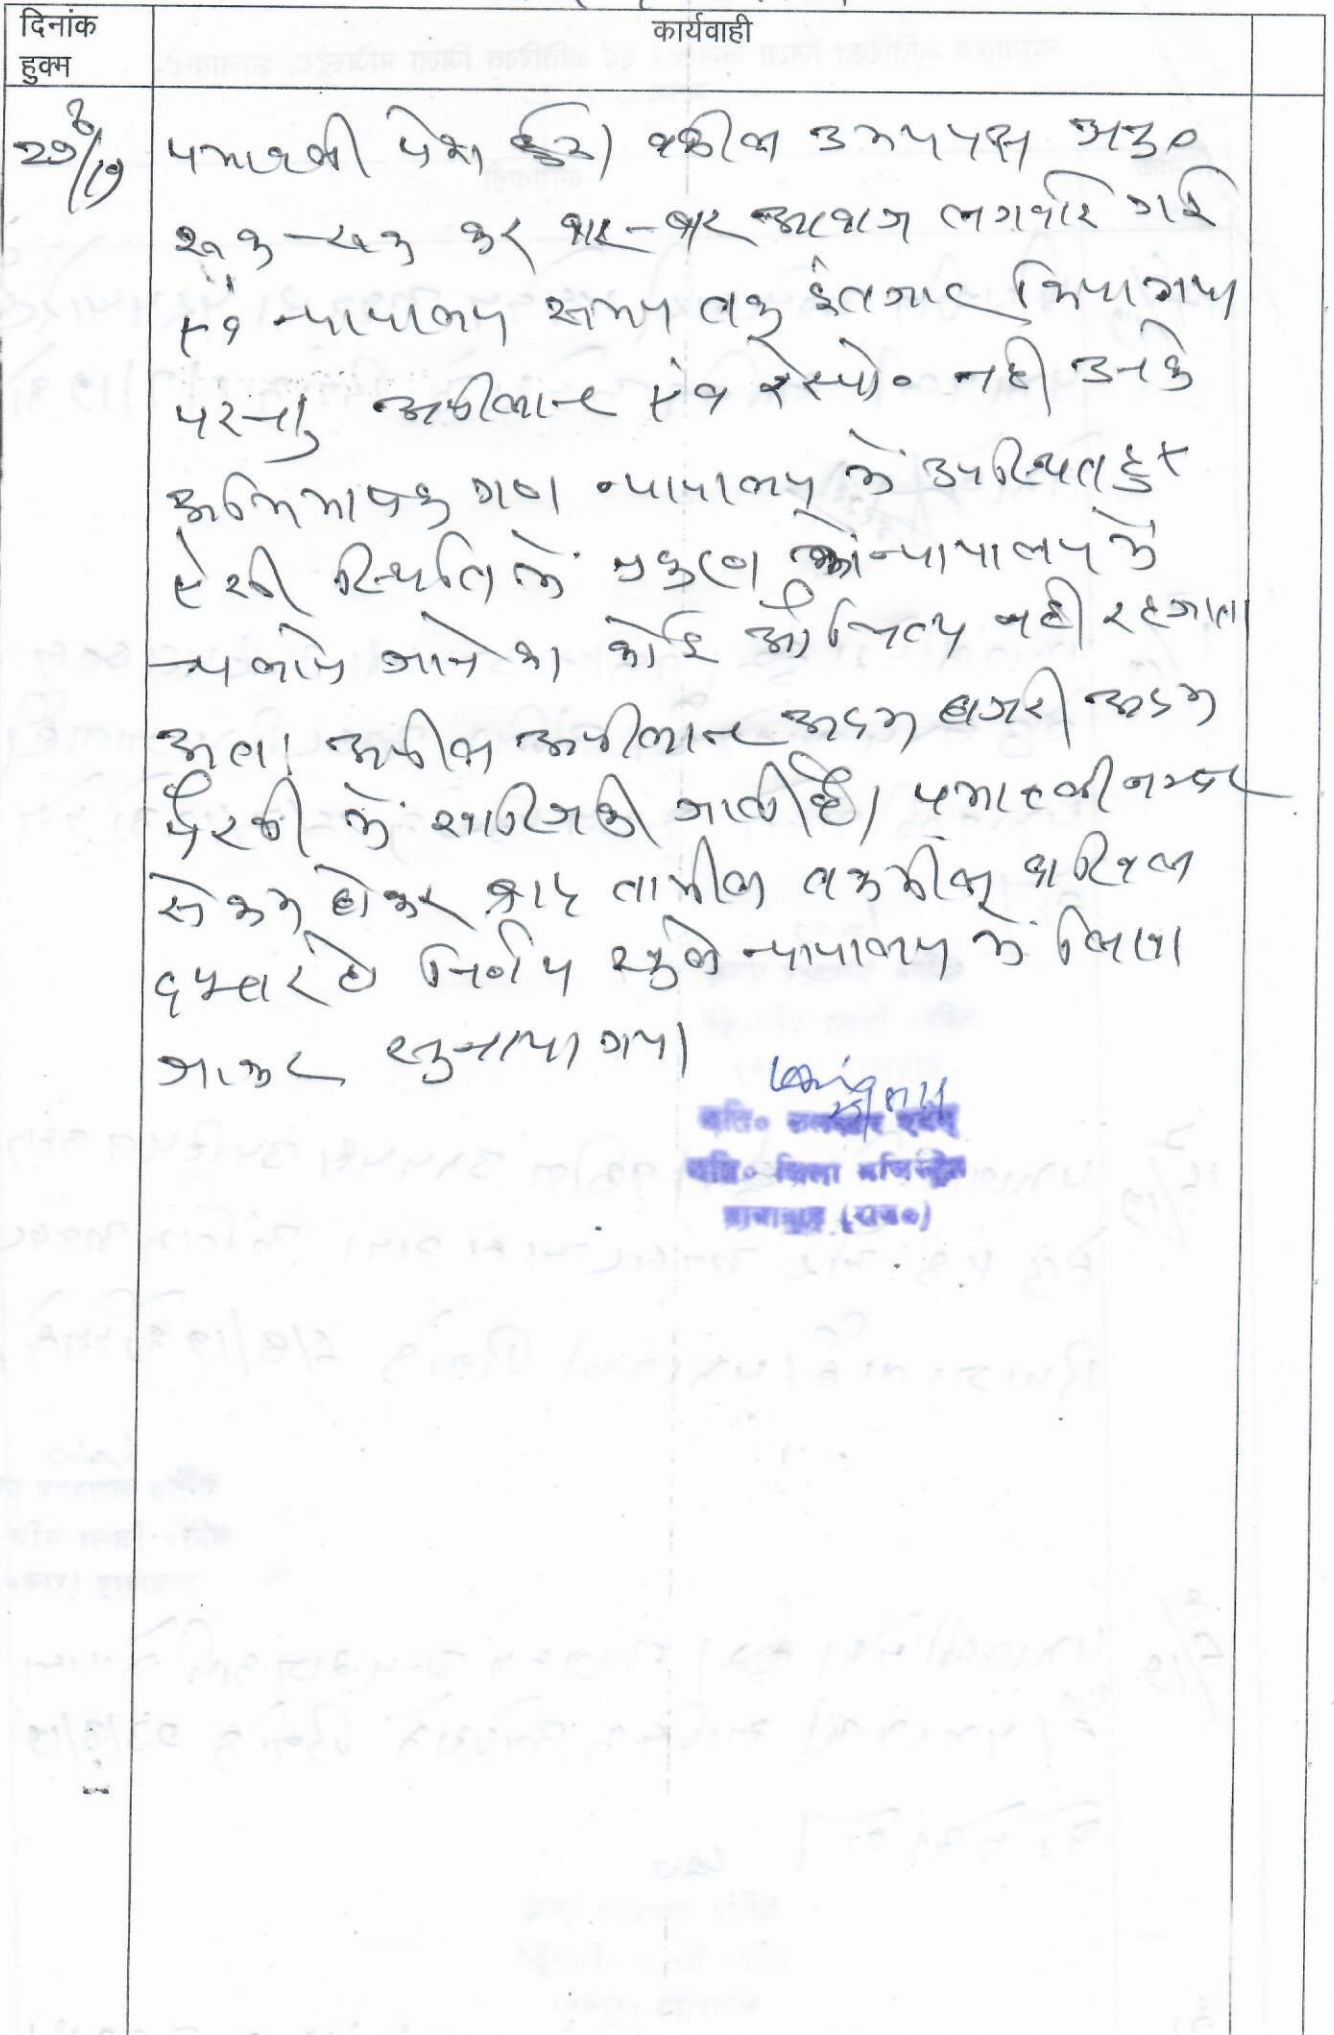 दिनांक
हुक्म
कार्यवाही
29/8/19
पत्रावली पेश हुई। वकील उभयपक्ष अनु०
रूक-रूक कर बार-बार आवाज लगवाई गई
एवं न्यायालय समय तक इंतजार किया गया
परन्तु अपीलान्ट एवं रेस्पो० नही उनके
अभिभाषक गण न्यायालय में उपस्थित हुए
ऐसी स्थिति में प्रकरण को न्यायालय में
चलाये जाने का कोई औचित्य नही रह जाता
अतः अपील अपीलान्ट अदम हाजरी अदम
पैरवी में खारिज की जाती है। पत्रावली नम्बर
से कम होकर बाद तामील तकमील दाखिल
दफ्तर हो निर्णय खुले न्यायालय में लिखा
जाकर सुनाया गया।
अति० कलक्टर एवंम्
अति० जिला मजिस्ट्रेट
(राज०)